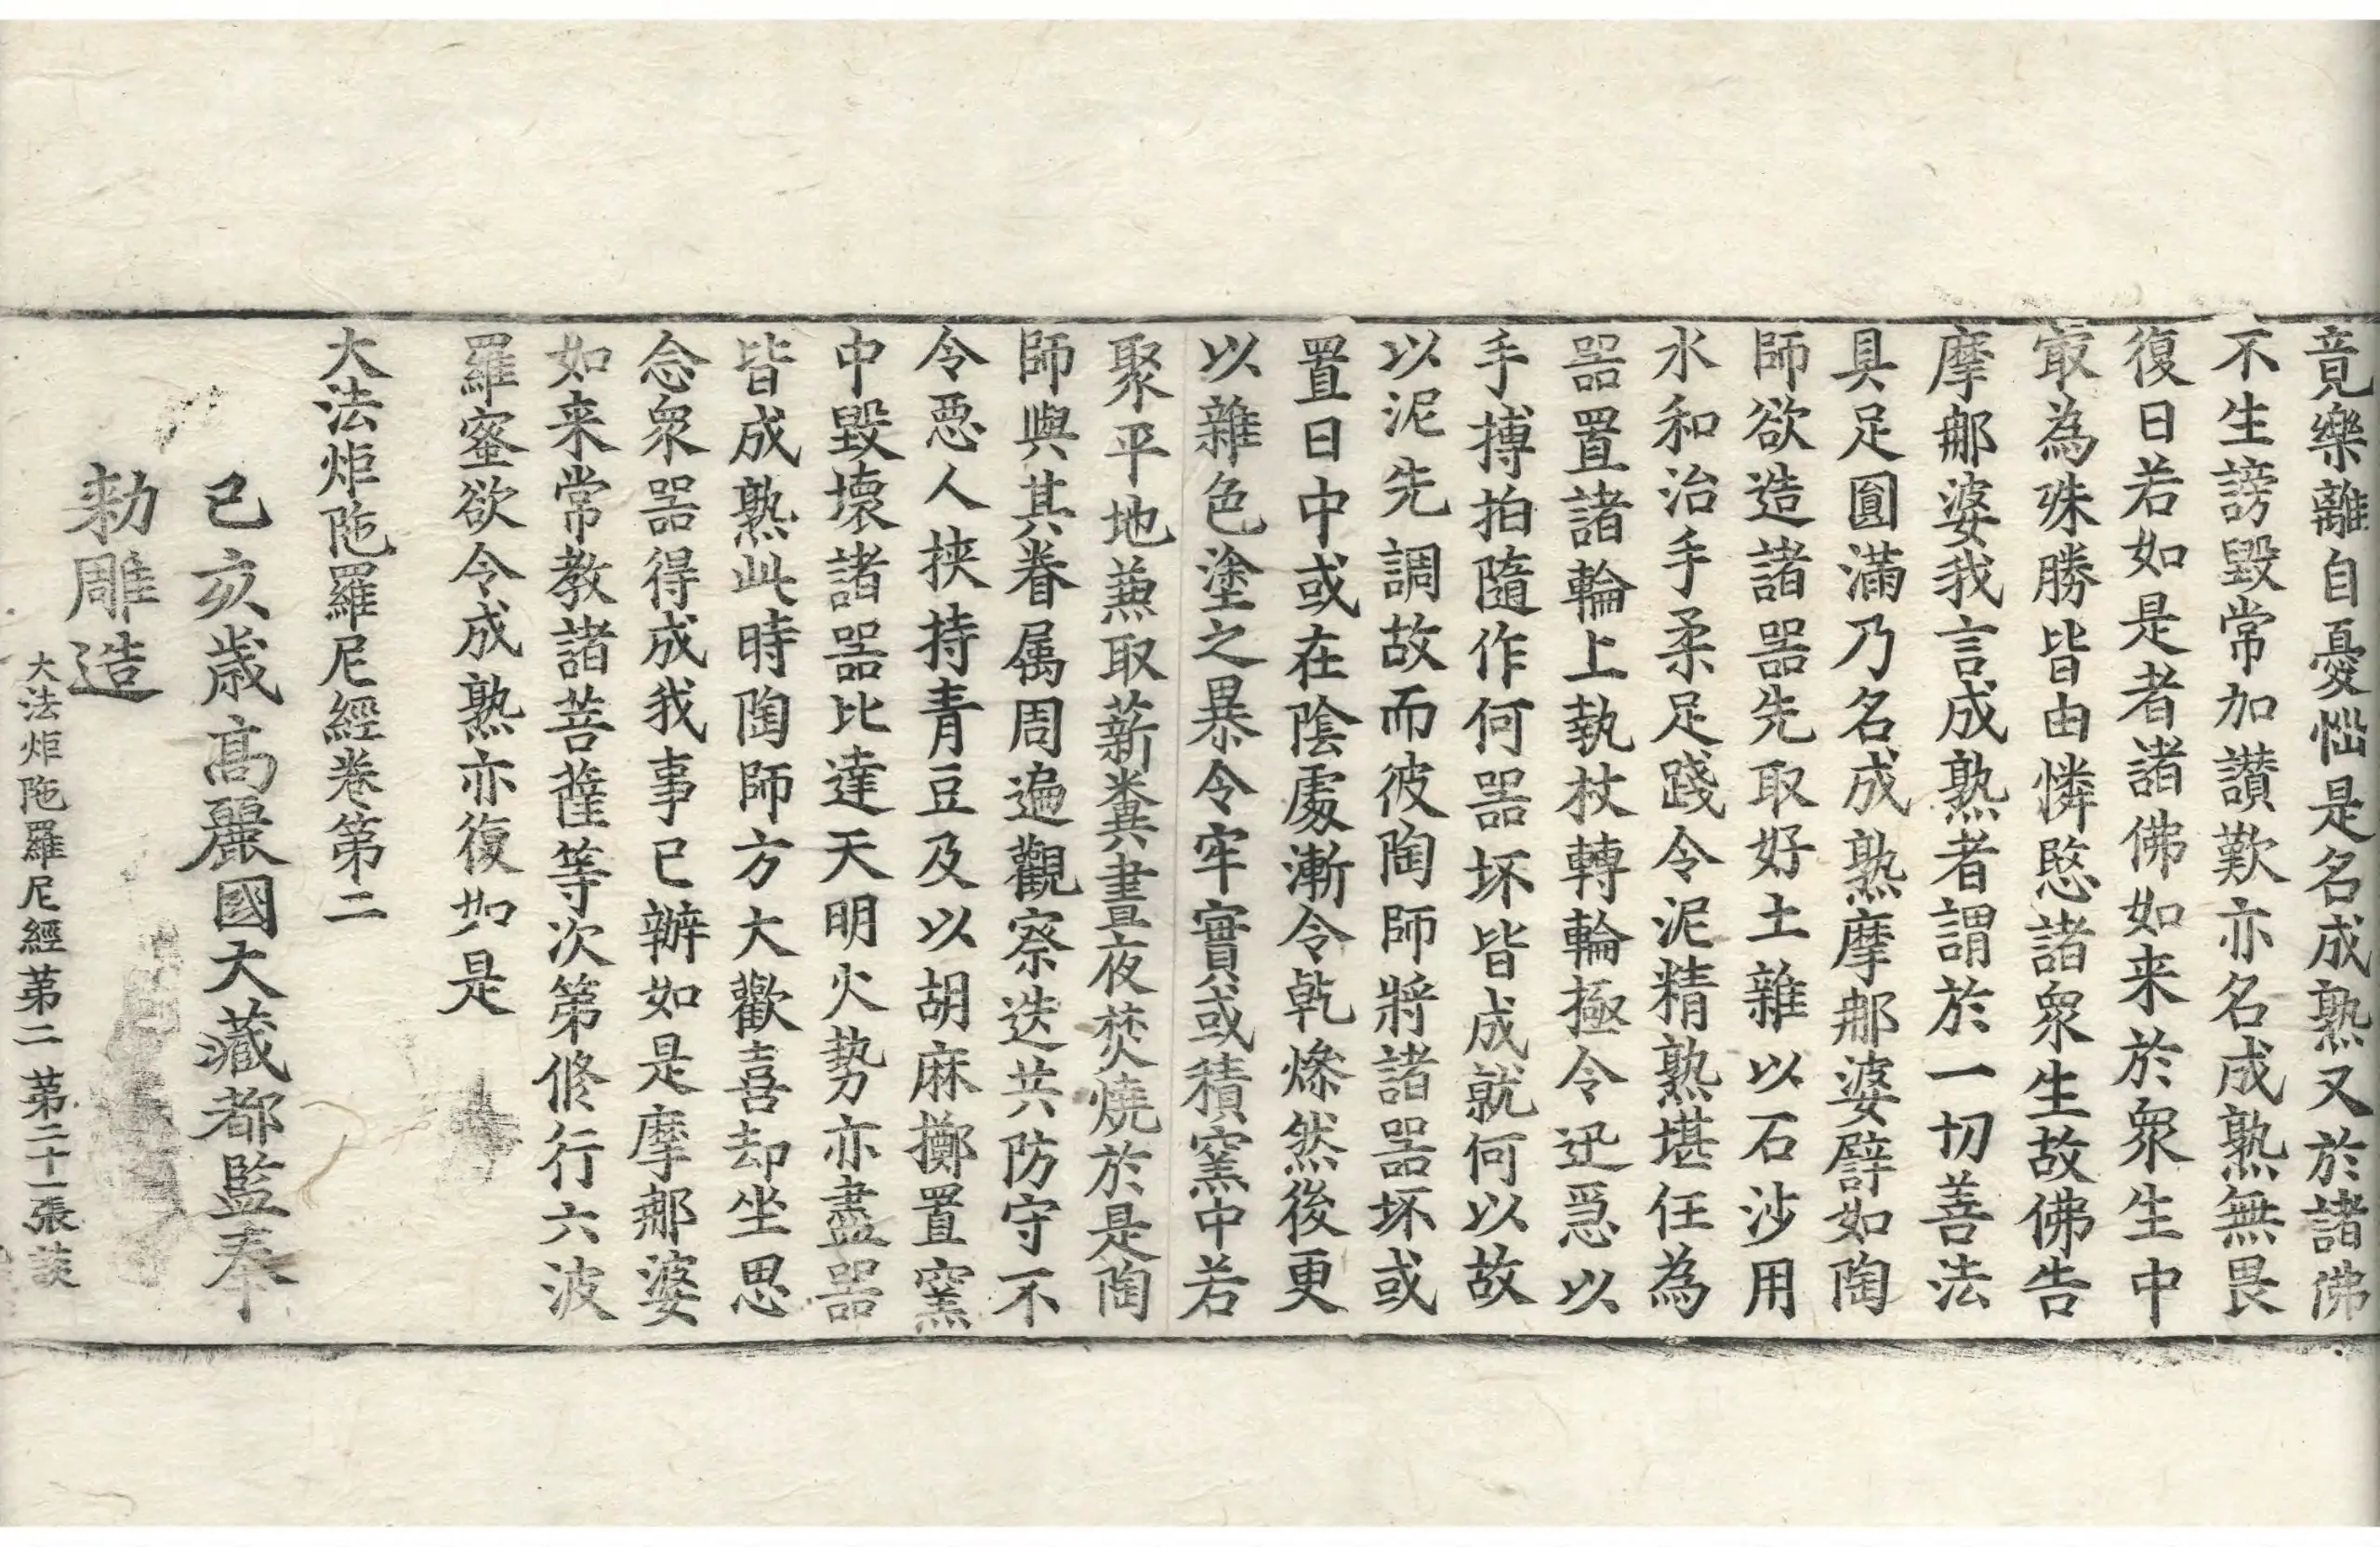 竟樂離自憂惱是名成熟又於諸佛
不生謗毀常加讃歎亦名成熟無畏
復曰若如是者諸佛如来於衆生中
㝡為殊勝皆由憐愍諸衆生故佛告
摩那婆我言成熟者謂於一切善法
具足圓滿乃名成熟摩那婆譬如陶
師欲造諸器先取好土雜以石沙用
水和治手柔足踐令泥精熟堪任為
器置諸輪上執杖轉輪極令迅急以
手搏拍隨作何器坏皆成就何以故
以泥先調故而彼陶師將諸器坏或
置日中或在陰處漸令乾燥然後更
以雜色塗之暴令牢實或積窯中若
聚平地兼取薪糞晝夜焚燒於是陶
師與其眷属周遍觀察迭共防守不
令惡人挾持青豆及以胡麻擲置窯
中毀壞諸器比達天明火勢亦盡器
皆成熟此時陶師方大歡喜却坐思
念衆器得成我事已辦如是摩那婆
如来常教諸菩薩等次第修行六波
羅蜜欲令成熟亦復如是
大法炬陁羅尼經卷第二
己亥歲高麗國大藏都監奉
勑雕造
大法炬陁羅尼經第二 第二十一張談